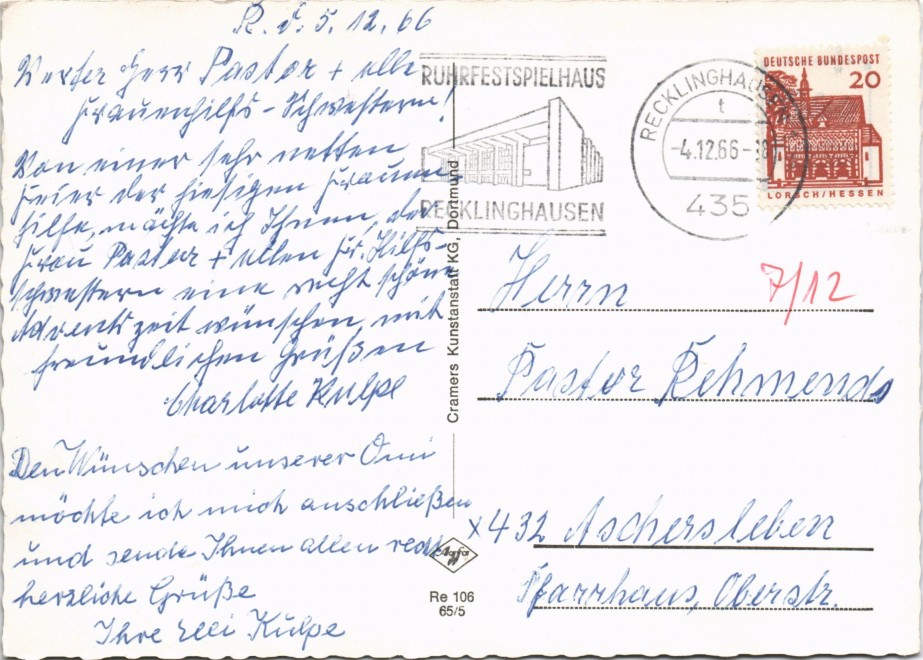 R. d. 5. 12. 66
Werter Herr Pastor + alle
Frauenhilfs-Schwestern!
Von einer sehr netten
Feier der hiesigen Frauen
hilfe, möchte ich Ihnen, der
Frau Pastor + allen Fr. Hilfs-
schwestern eine recht schöne
Adventszeit wünschen, mit
freundlichen Grüßen
Charlotte Kulpe
Den Wünschen unserer Omi
möchte ich mich anschließen
und sende Ihnen allen recht
herzliche Grüße
Ihre Elli Kulpe
Cramers Kunstanstalt KG., Dortmund
Agfa
Re 106
65/5
RUHRFESTSPIELHAUS
RECKLINGHAUSEN
RECKLINGHAUSEN
t
-4.12.66-18
435
DEUTSCHE BUNDESPOST
20
LORSCH/HESSEN
7/12
Herrn
Pastor Rehmendo
x432 Aschersleben
Pfarrhaus, Oberstr.